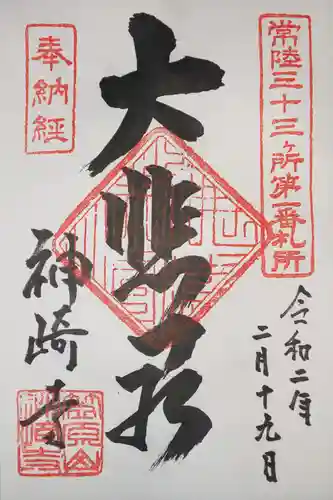 常陸三十三ヶ所第一番札所
奉納経
大悲殿
神崎寺
令和二年
二月十九日